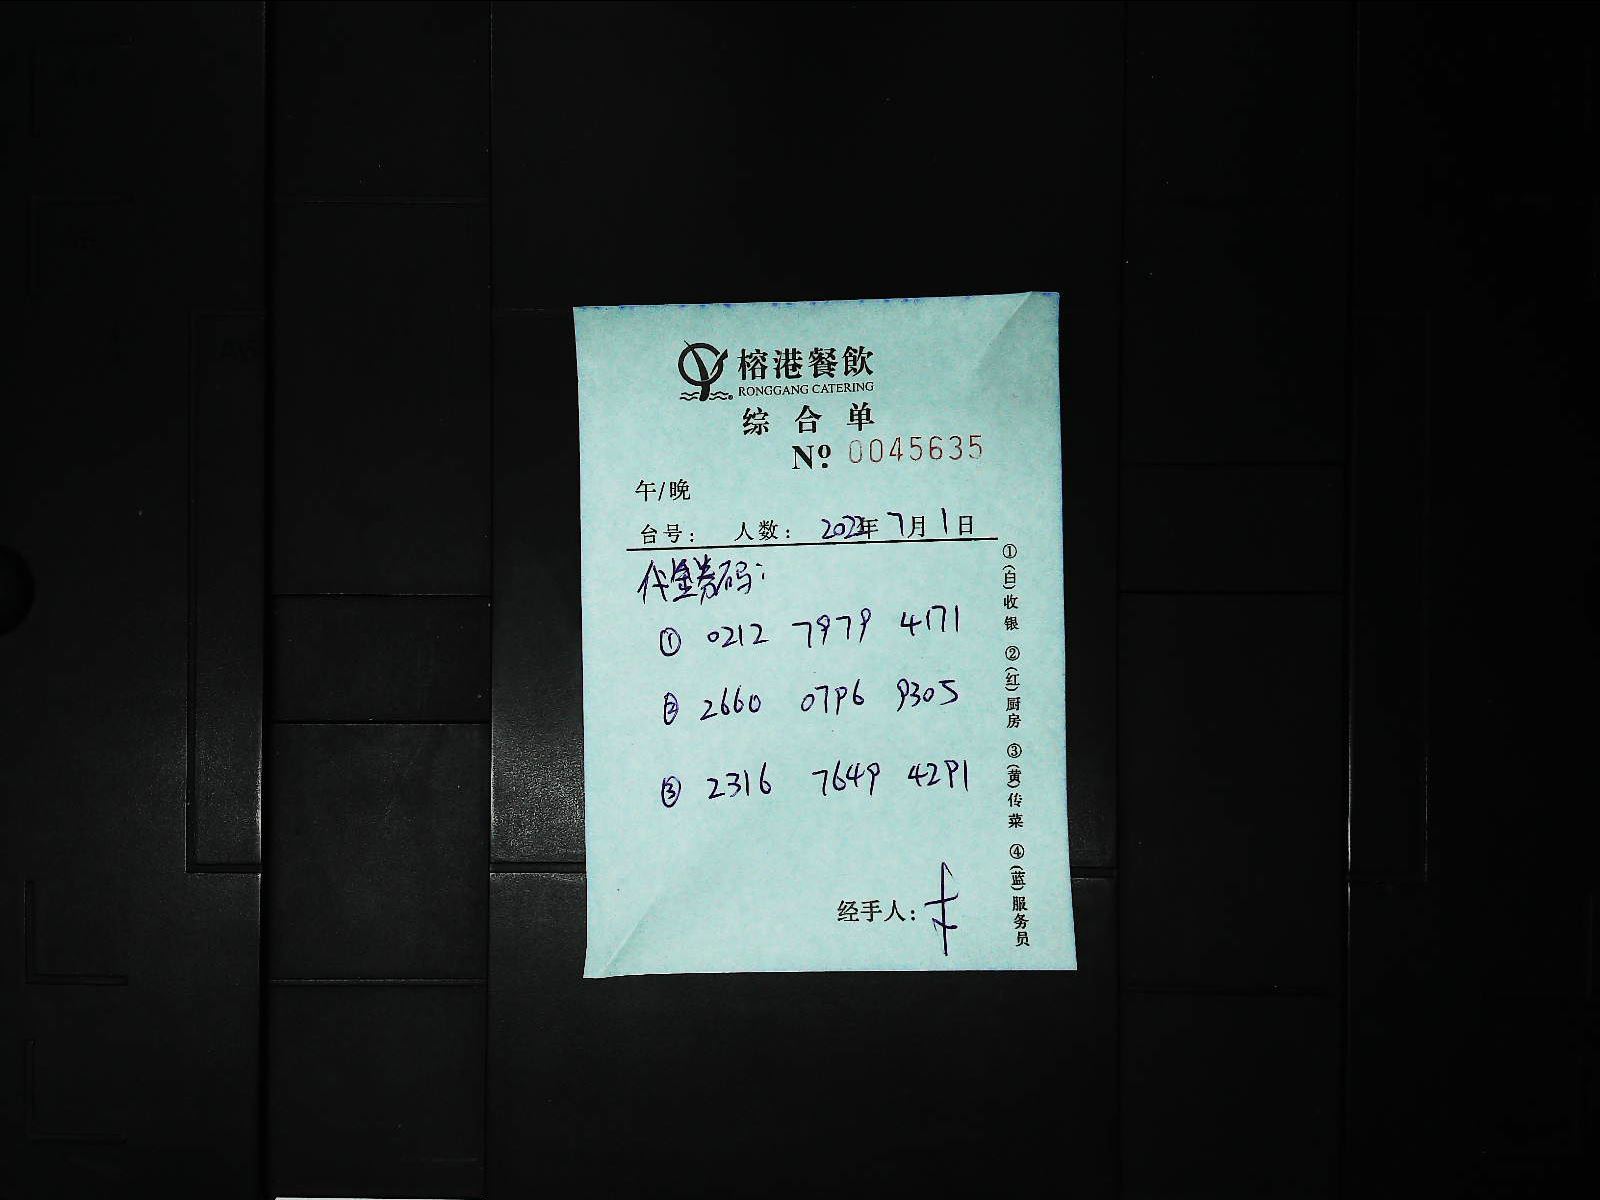 榕港餐飲
RONGGANG CATERING
综合单
Nº. 0045635
午/晚
台号： 人数： 2022年7月1日
代金券码：
① 0212 7979 4171
② 2660 0796 9305
③ 2316 7649 4291
经手人：
①(白)收银 ②(红)厨房 ③(黄)传菜 ④(蓝)服务员